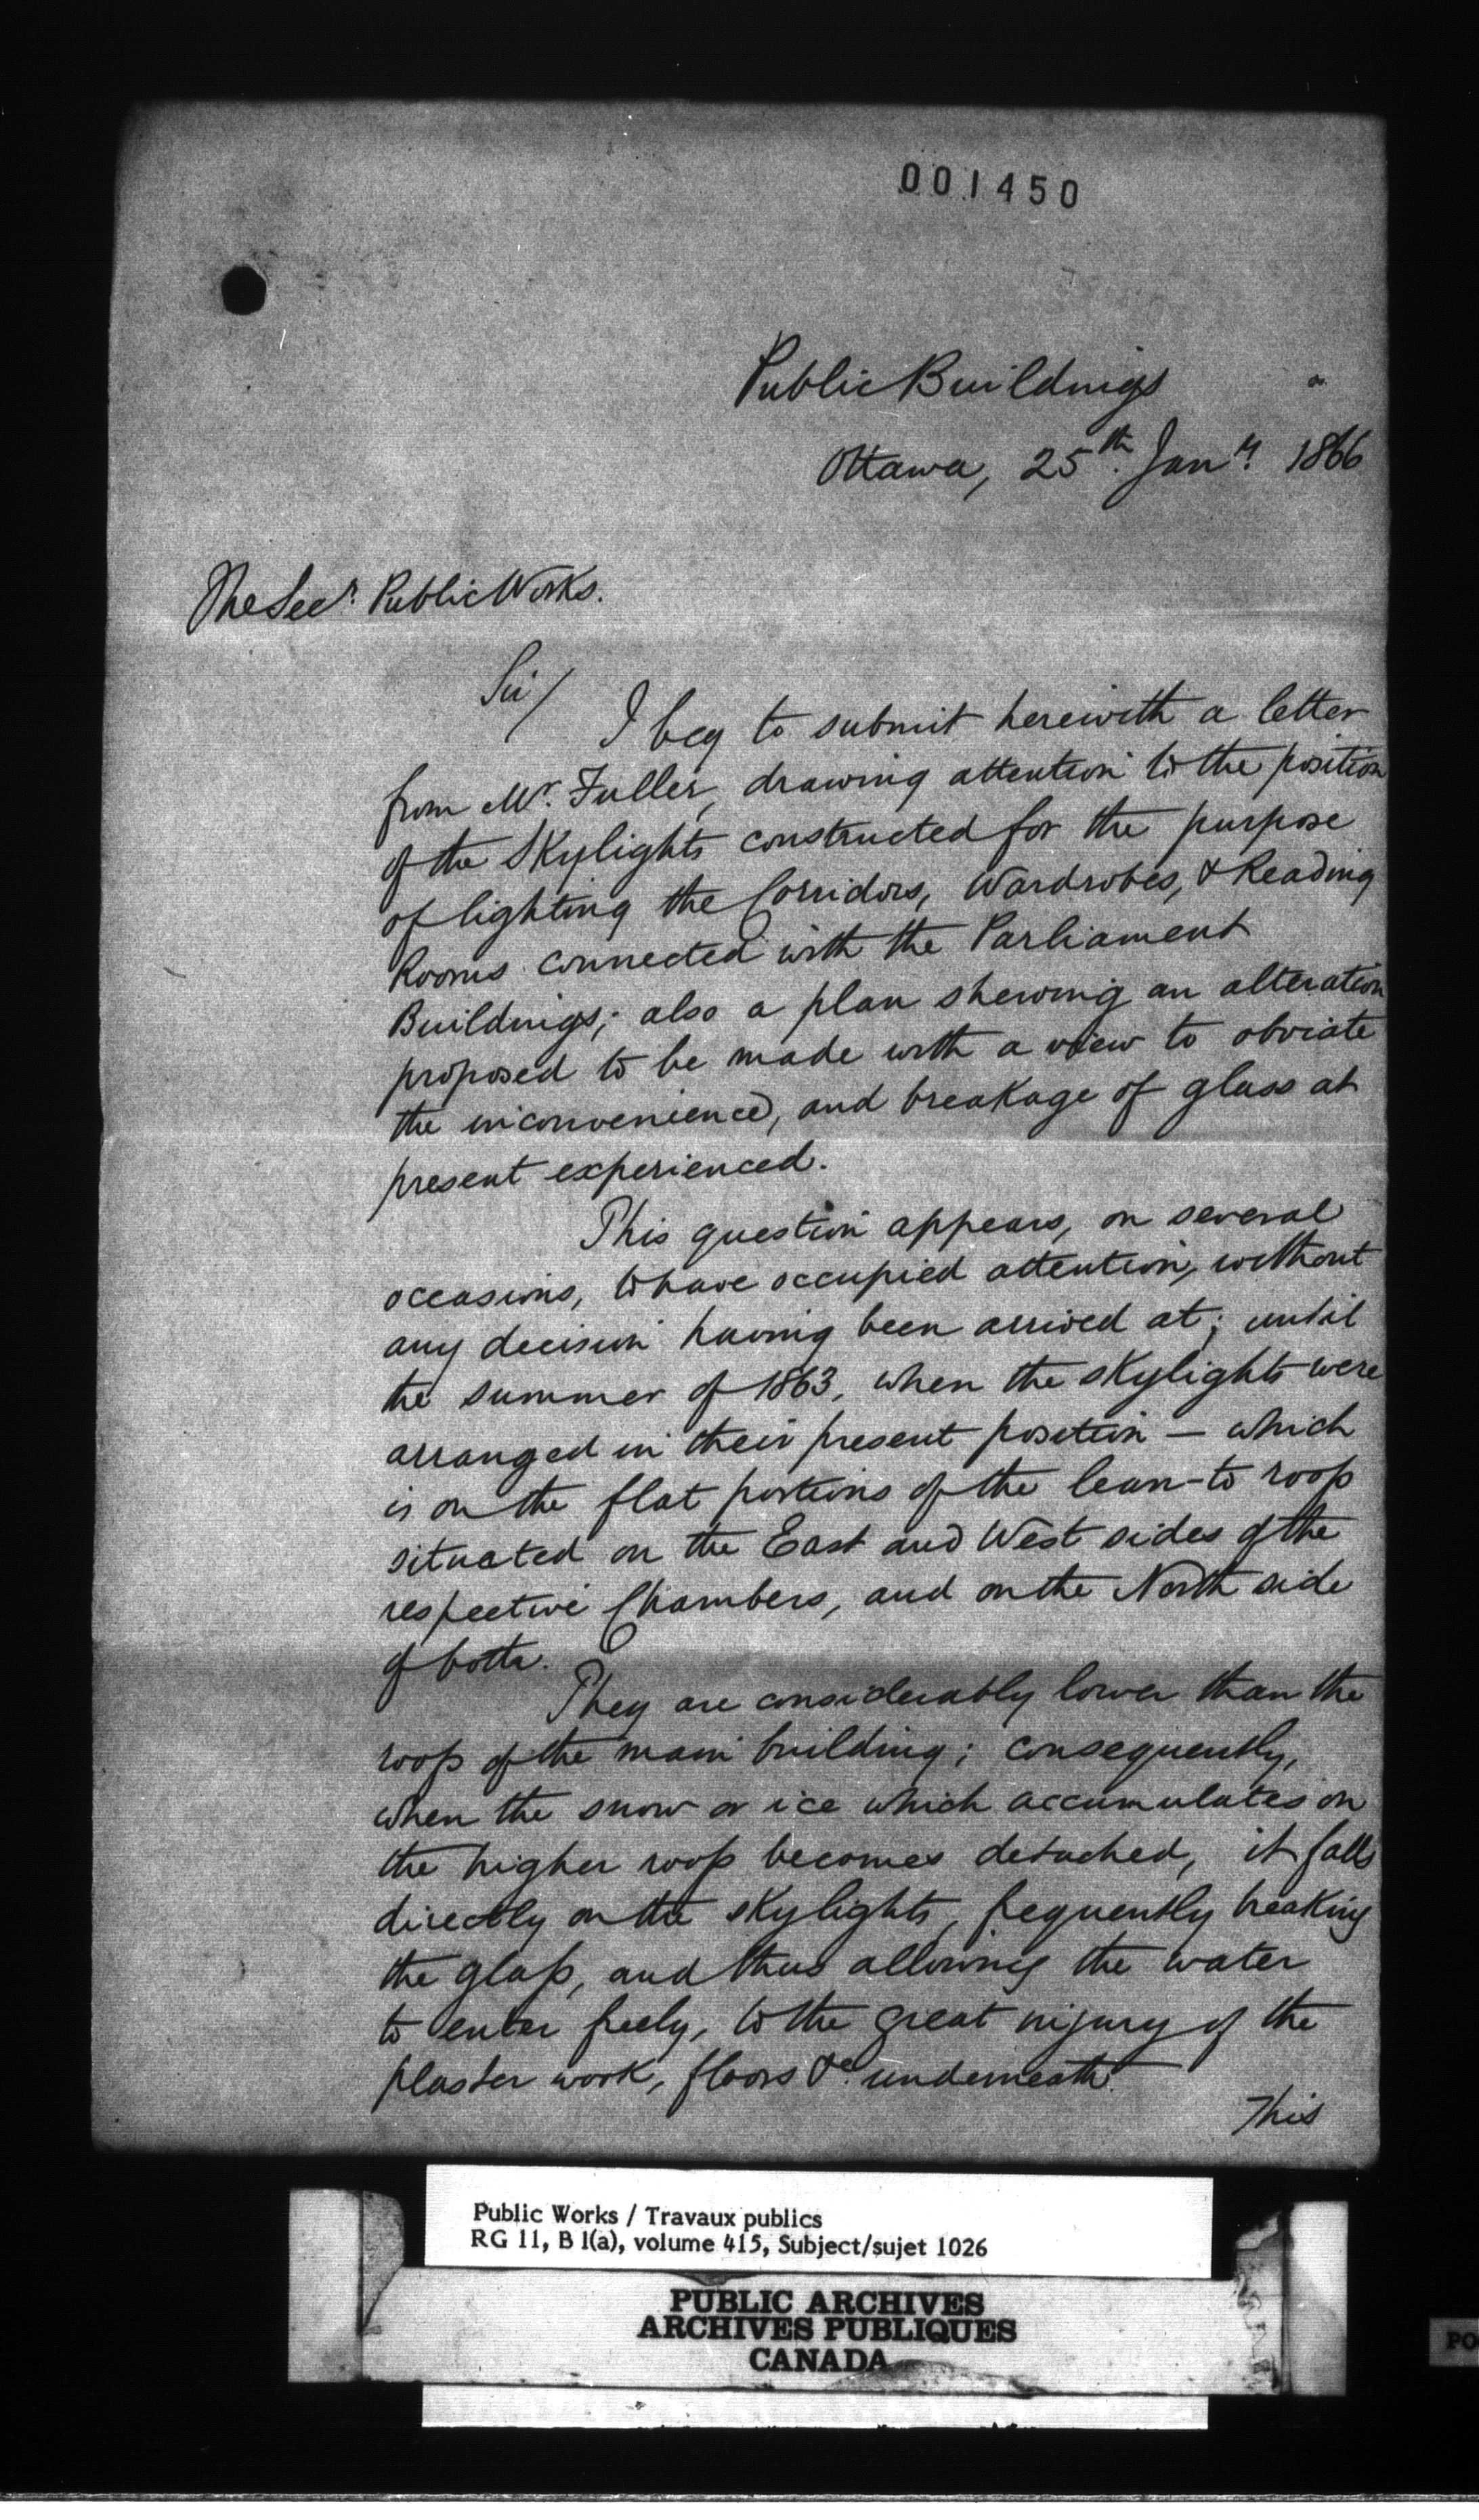 001450
Public Buildings
Ottawa, 25th. Jany. 1866
The Secy. Public Works.
Sir/
I beg to submit herewith a letter
from Mr. Fuller, drawing attention to the position
of the Skylights constructed for the purpose
of lighting the Corridors, Wardrobes, & Reading
Rooms connected with the Parliament
Buildings; also a plan shewing an alteration
proposed to be made with a view to obviate
the inconvenience, and breakage of glass at
present experienced.
This question appears, on several
occasions, to have occupied attention, without
any decision having been arrived at; until
the summer of 1863, when the skylights were
arranged in their present position — which
is on the flat portions of the lean-to roofs
situated on the East and West sides of the
respective Chambers, and on the North side
of both.
They are considerably lower than the
roofs of the main building; consequently,
when the snow or ice which accumulates on
the higher roofs becomes detached, it falls
directly on the skylights, frequently breaking
the glass, and thus allowing the water
to enter freely, to the great injury of the
plaster work, floors &c. underneath.
This
Public Works / Travaux publics
RG 11, B 1(a), volume 415, Subject/sujet 1026
PUBLIC ARCHIVES
ARCHIVES PUBLIQUES
CANADA
PO